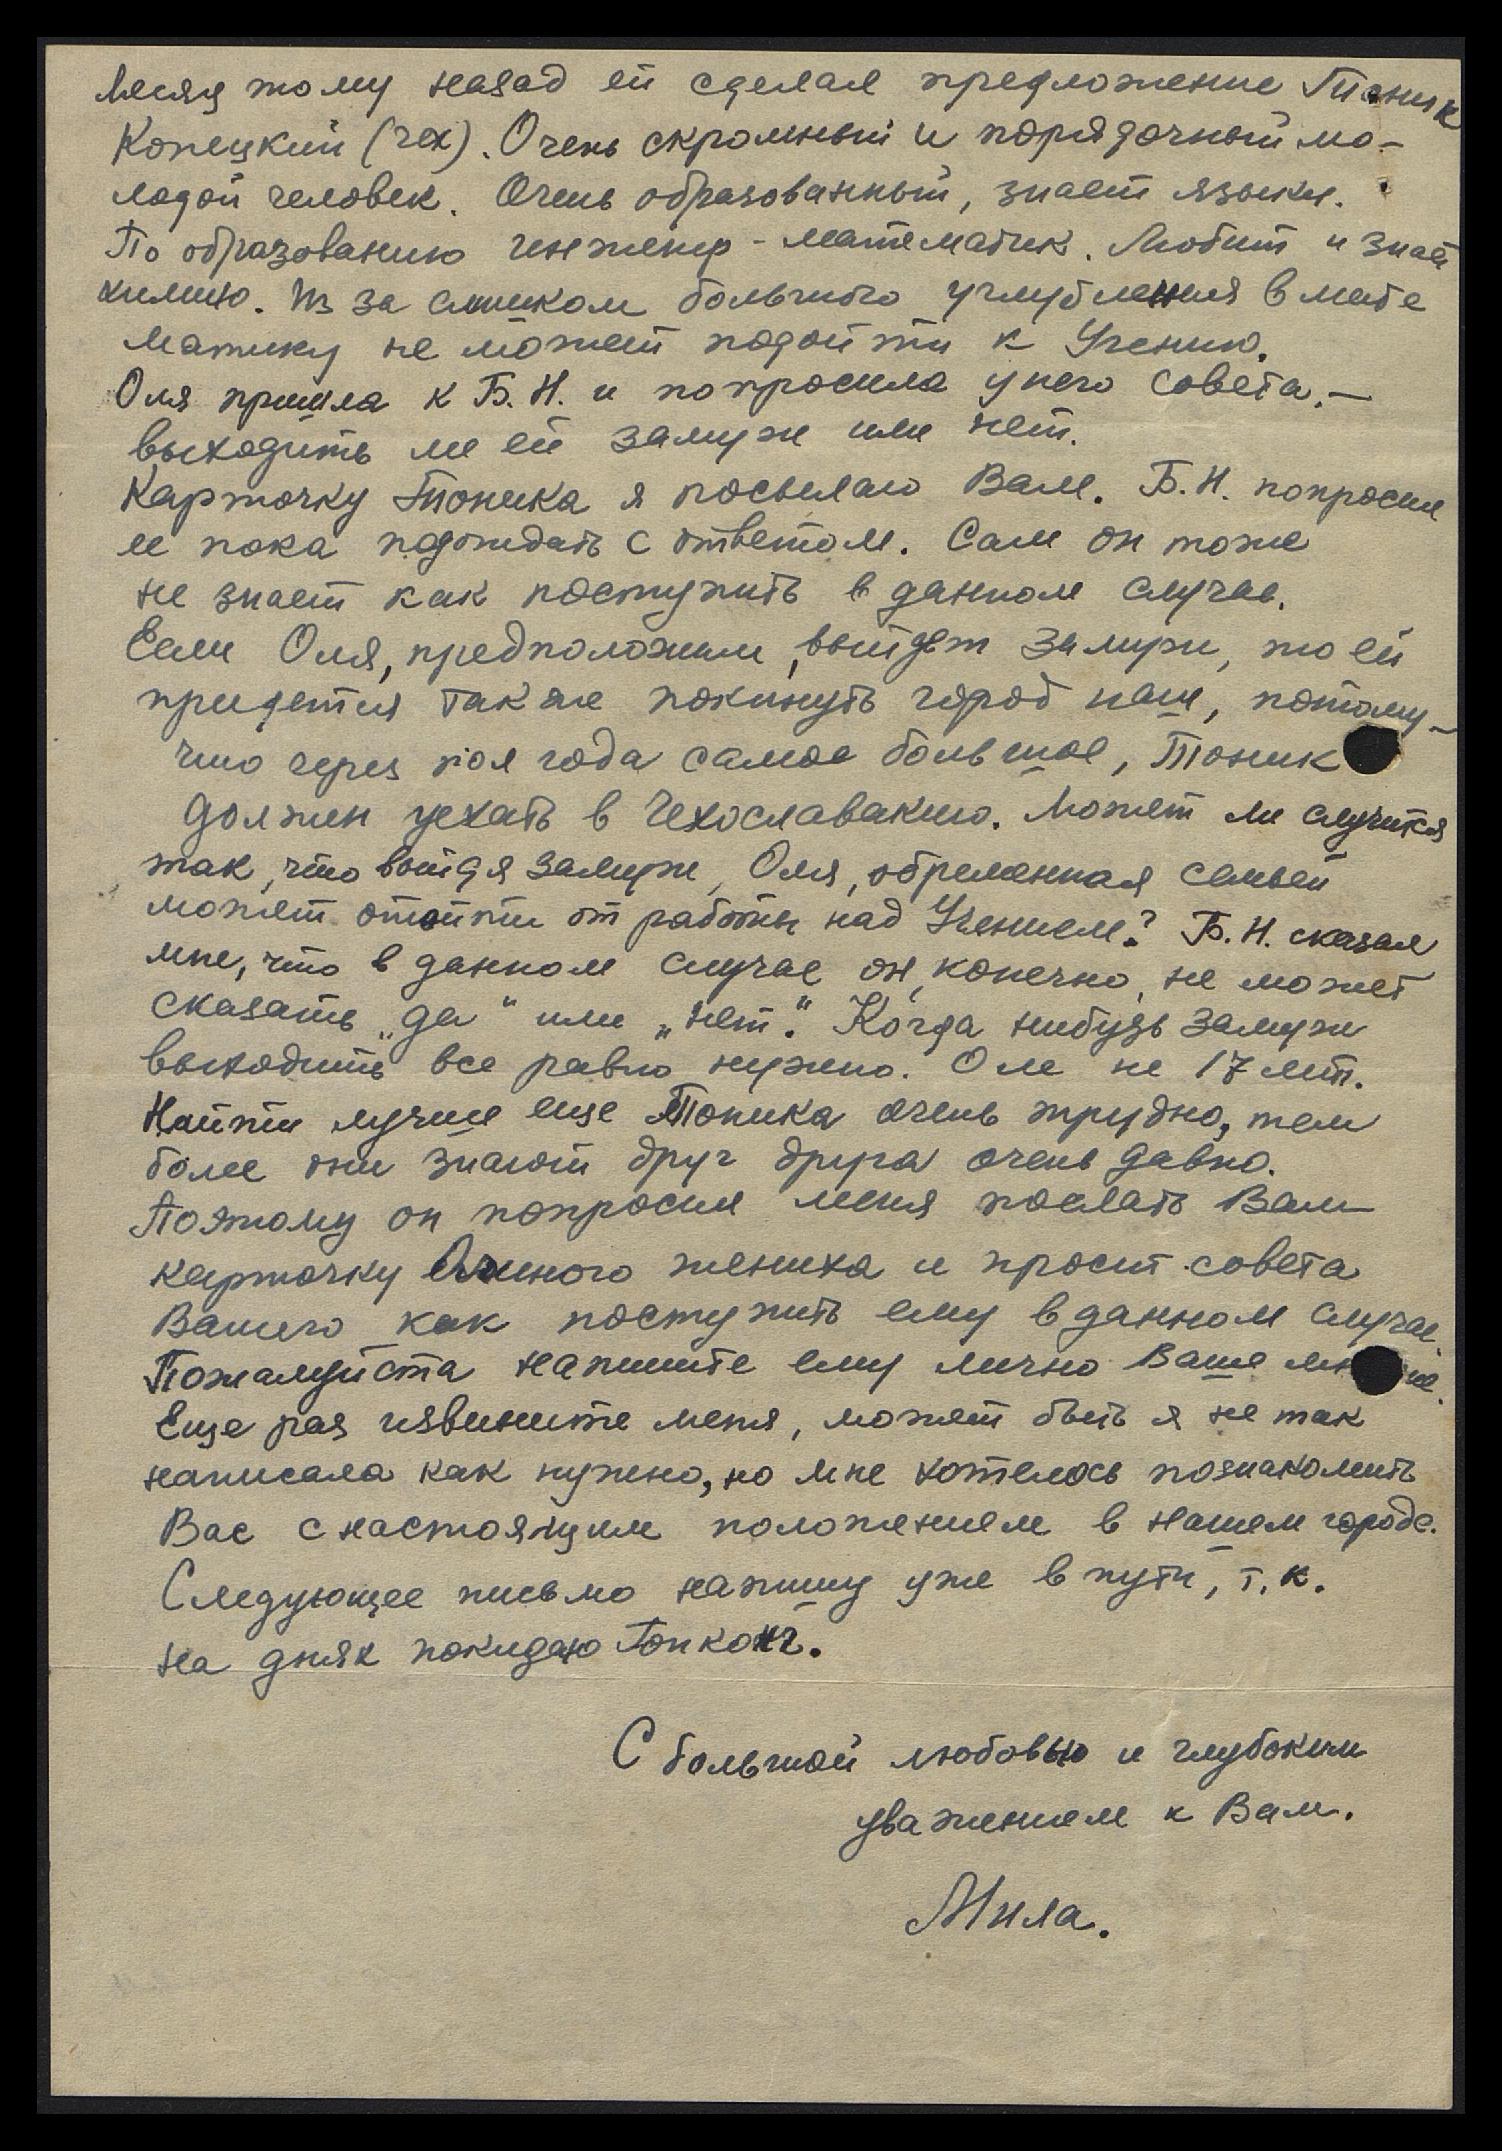 Месяц тому назад ей сделал предложение Тоник
Копецкий (чех). Очень скромный и порядочный мо-
лодой человек. Очень образованный, знает языки.
По образованию инженер - математик. Любит и знает
химию. Из за слишком большого углубления в мате
матику не может подойти к Учению.
Оля пришла к Б.Н. и попросила у него совета. —
выходить ли ей замуж или нет.
Карточку Тоника я посылаю Вам. Б.Н. попросил
ее пока подождать с ответом. Сам он тоже
не знает как поступить в данном случае.
Если Оля, предположим, выйдет замуж, то ей
придется также покинуть город наш, потому-
что через пол года самое большое, Тоник
должен уехать в Чехославакию. Может ли случится
так, что выйдя замуж, Оля, обремененная семьей
может отойти от работы над Учением? Б.Н. сказал
мне, что в данном случае он, конечно, не может
сказать „да" или „нет". Когда нибудь замуж
выходить все равно нужно. Оле не 17 лет.
Найти лучше еще Тоника очень трудно, тем
более они знают друг друга очень давно.
Поэтому он попросил меня послать Вам
карточку Олиного жениха и просит совета
Вашего как поступить ему в данном случае.
Пожалуйста напишите ему лично Ваше мнение.
Еще раз извините меня, может быть я не так
написала как нужно, но мне хотелось познакомить
Вас с настоящим положением в нашем городе.
Следующее письмо напишу уже в пути, т.к.
на днях покидаю Гонконг.
С большой любовью и глубоким
уважением к Вам.
Мила.